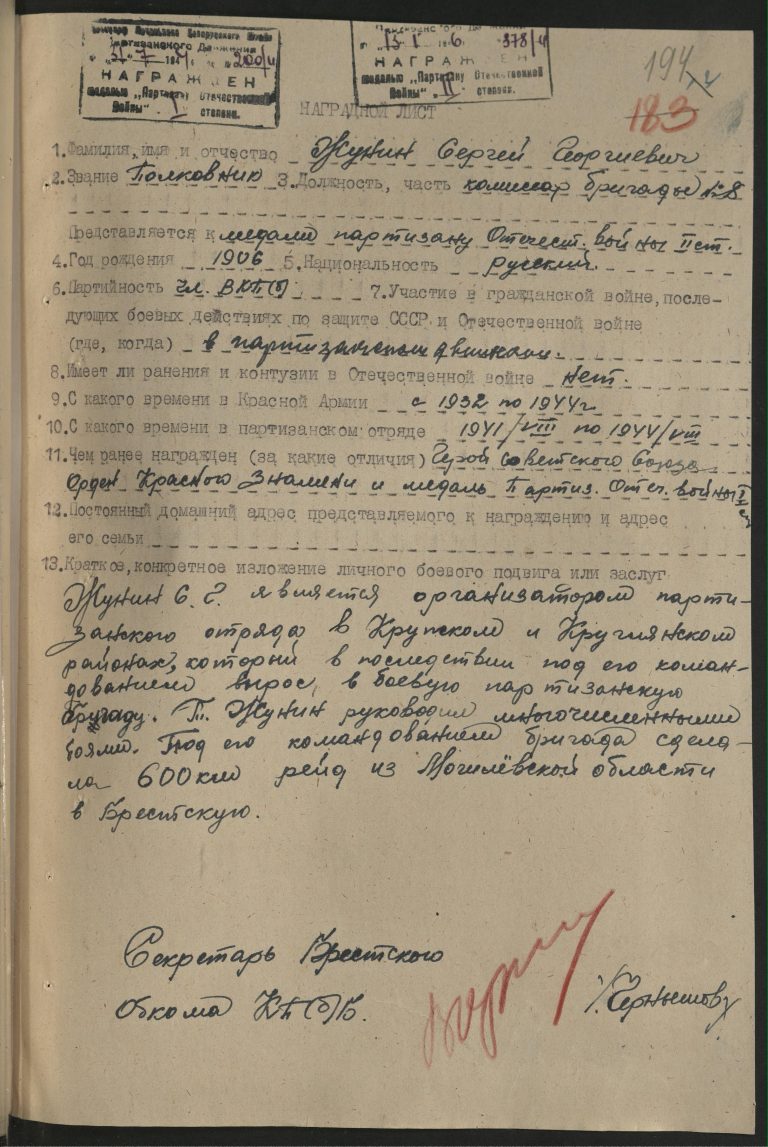 Партизанского Движения
НАГРАЖДЕН
медалью „Партизану Отечественной
Войны" I степени.
НАГРАЖДЕН
медалью „Партизану Отечественной
Войны" II степени.
194
183
НАГРАДНОЙ ЛИСТ
1.Фамилия,имя и отчество Жунин Сергей Георгиевич
2.Звание Полковник 3.Должность, часть комиссар бригады №8
Представляется к медали партизану Отечест. войны II ст.
4.Год рождения 1906 5.Национальность русский.
6.Партийность чл. ВКП(б) 7.Участие в гражданской войне,после-
дующих боевых действиях по защите СССР и Отечественной войне
(где, когда) в партизанском движении.
8.Имеет ли ранения и контузии в Отечественной войне нет.
9.С какого времени в Красной Армии с 1932 по 1944г
10.С какого времени в партизанском отряде 1941/VIII по 1944/VIII
11.Чем ранее награжден (за какие отличия) Герой Советского Союза
Орден Красного Знамени и медаль Партиз. Отеч. войны I ст
12.Постоянный домашний адрес представляемого к награждению и адрес
его семьи
13.Краткое,конкретное изложение личного боевого подвига или заслуг
Жунин С. Г. является организатором парти-
занского отряда в Крупском и Круглянском
районах, который в последствии под его коман-
дованием вырос, в боевую партизанскую
бригаду. Т. Жунин руководил многочисленными
боями. Под его командованием бригада сдела-
ла 600 км рейд из Могилёвской области
в Брестскую.
Секретарь Брестского
Обкома КП(б)Б.
/Чернышов/